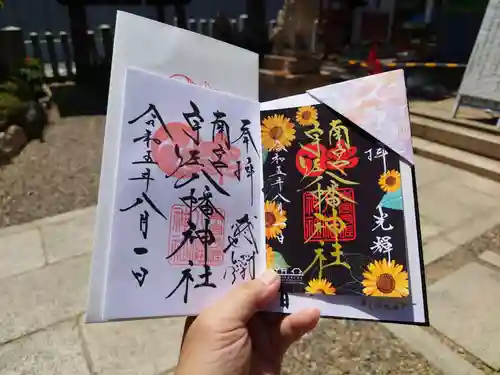 奉拝
南宮
宇佐八幡神社
令和五年八月一日
拝
光輝
南宮
宇佐八幡神社
令和五年